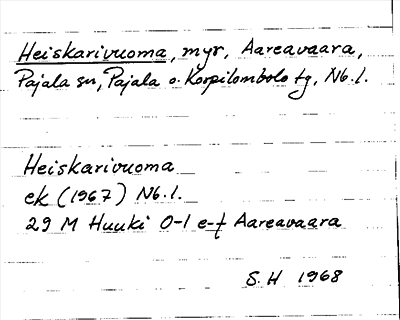 Heiskarivuoma, myr, Aareavaara,
Pajala sn, Pajala o. Korpilombolo tg, Nb.l.
Heiskarivuoma
ek (1967) Nb.l.
29 M Huuki 0-1 e-f Aareavaara
S.H 1968